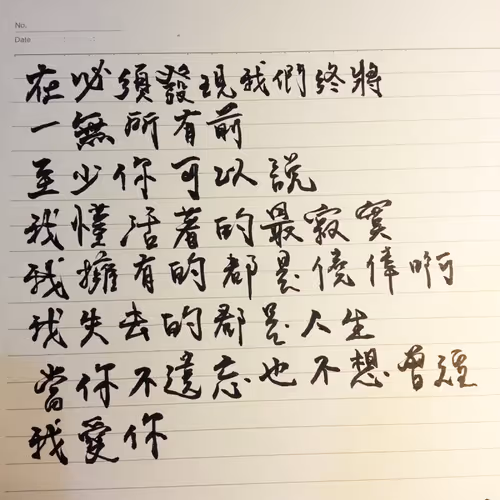 No.
Date
在必須發現我們終將
一無所有前
至少你可以說
我懂活著的最寂寞
我擁有的都是僥倖啊
我失去的都是人生
當你不遺忘也不想曾經
我愛你